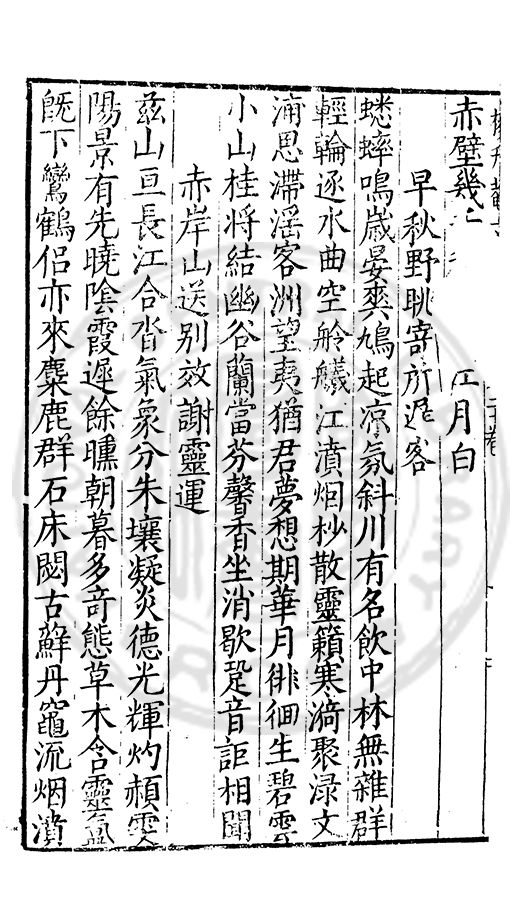 赤壁幾
江月白
早秋野眺寄所遲客
蟋蟀鳴歲晏爽鳩起凉氛斜川有名飲中林無雜群
輕輪逐水曲空舲艤江濆烟杪散靈籟寒漪聚渌文
浦思滯滛客洲望夷猶君夢想期華月徘徊生碧雲
小山桂将結幽谷蘭當芬馨香坐消歇跫音詎相聞
赤岸山送别效謝靈運
兹山亘長江合沓氣象分朱壤凝炎德光輝灼赬雯
陽景有先曉陰霞遲餘曛朝暮多奇態草木含靈氲
旣下鸞鶴侣亦來麋鹿群石床閟古蘚丹竈流烟濆